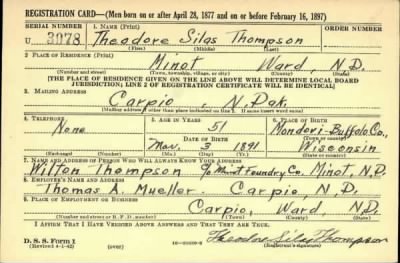 REGISTRATION CARD—(Men born on or after April 28, 1877 and on or before February 16, 1897)
SERIAL NUMBER 1. NAME (Print) ORDER NUMBER
U 3078 Theodore Silas Thompson
(First) (Middle) (Last)
2. PLACE OF RESIDENCE (Print)
Minot Ward N.D.
(Number and street) (Town, township, village, or city) (County) (State)
[THE PLACE OF RESIDENCE GIVEN ON THE LINE ABOVE WILL DETERMINE LOCAL BOARD
JURISDICTION; LINE 2 OF REGISTRATION CERTIFICATE WILL BE IDENTICAL]
3. MAILING ADDRESS
Carpio, N. Dak.
[Mailing address if other than place indicated on line 2. If same insert word same]
4. TELEPHONE 5. AGE IN YEARS 6. PLACE OF BIRTH
None 51 Mondovi-Buffalo Co.,
DATE OF BIRTH
Mar. 3 1891 Wisconsin
(Mo.) (Day) (Yr.)
7. NAME AND ADDRESS OF PERSON WHO WILL ALWAYS KNOW YOUR ADDRESS
Wilton Thompson c/o Minot Foundry Co. Minot, N.D.
8. EMPLOYER'S NAME AND ADDRESS
Thomas A. Mueller. Carpio, N.D.
9. PLACE OF EMPLOYMENT OR BUSINESS
Carpio, Ward, N.D.
(Number and street or R. F. D. number) (Town) (County) (State)
I AFFIRM THAT I HAVE VERIFIED ABOVE ANSWERS AND THAT THEY ARE TRUE.
D. S. S. Form 1
(Revised 4-1-42) (over)
Theodore Silas Thompson
(Registrant's signature)